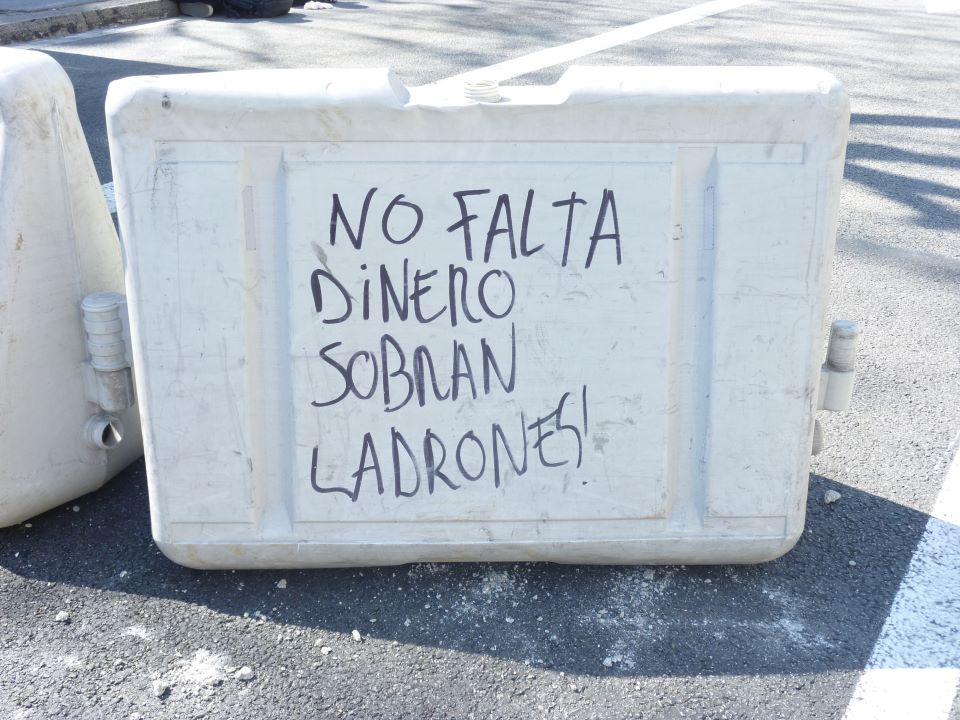 NO FALTA
DiNERO
SOBRAN
LADRONES!